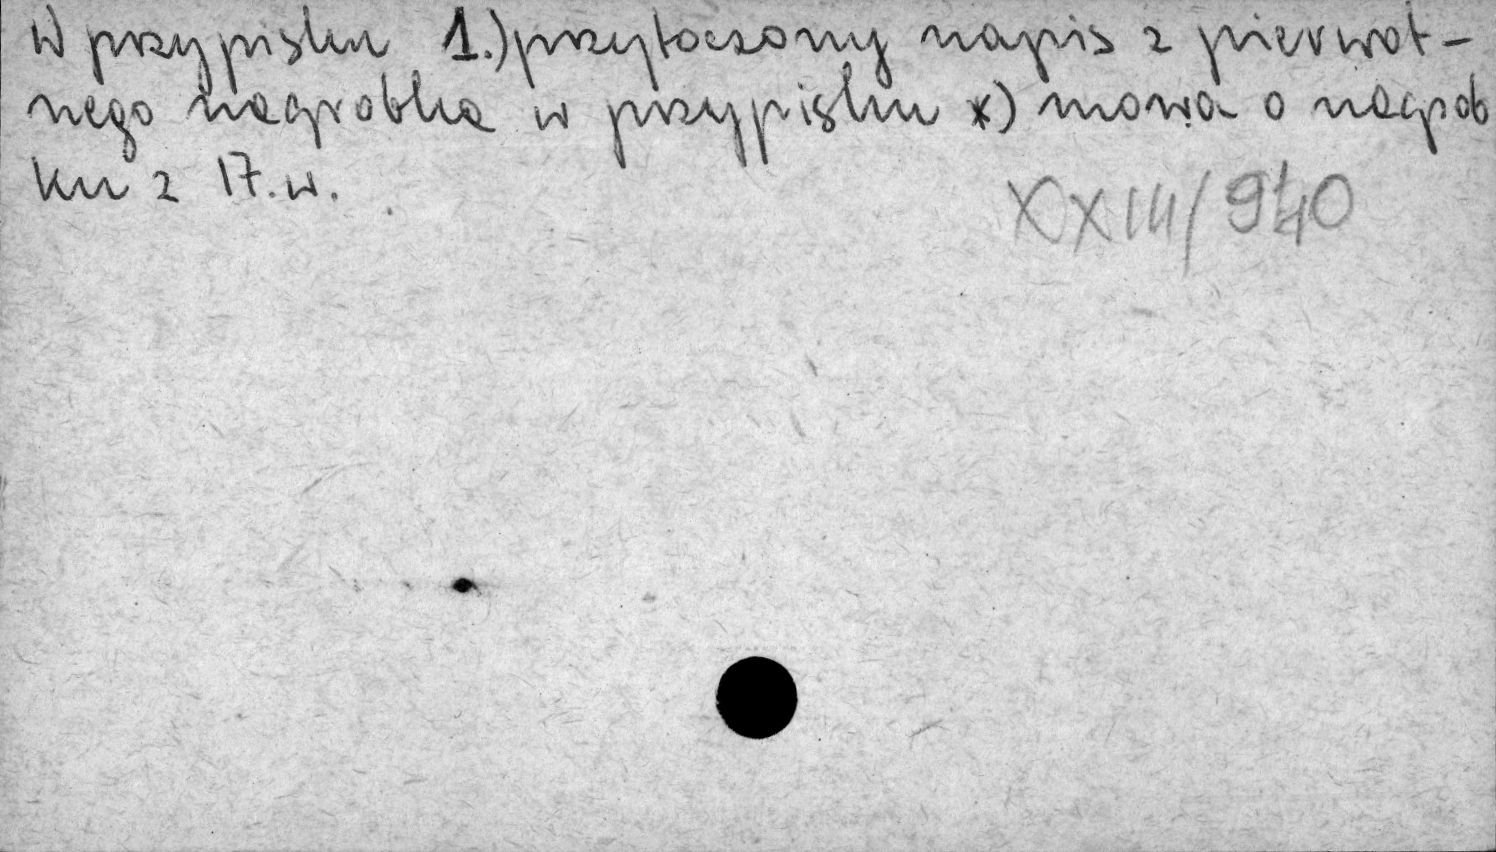 W przypisku 1.) przytoczony napis z pierwot-
nego nagrobka w przypisku *) mowa o nagrob
ku z 17. w.
XXIII/940